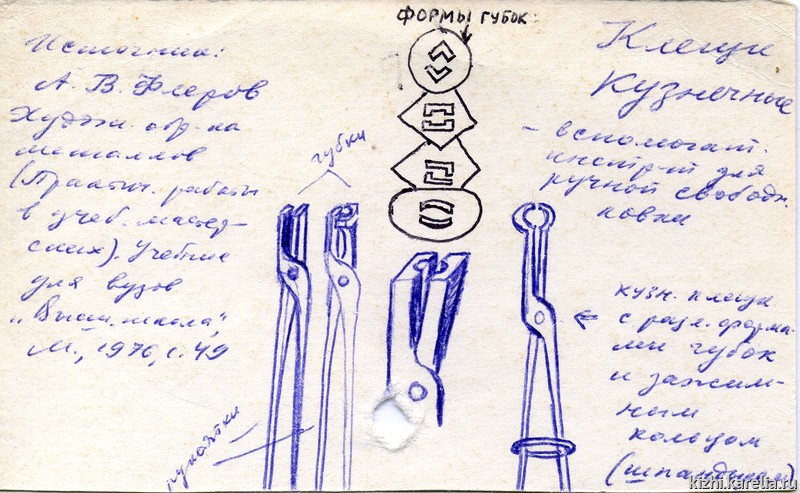 Источник:
А. В. Флеров
Худож. обр-ка
металлов
(Практич. работы
в учеб. мастер-
ских). Учебник
для вузов
„Высш. школа",
М., 1976, с. 49
губки
рукоятки
ФОРМЫ ГУБОК:
Клещи
Кузнечные
- вспомогат.
инстр-т для
ручной свободн.
ковки
кузн. клещи
с разл. форма-
ми губок
и зажим-
ным
кольцом
(шпандыrем)
kizhi.karelia.ru